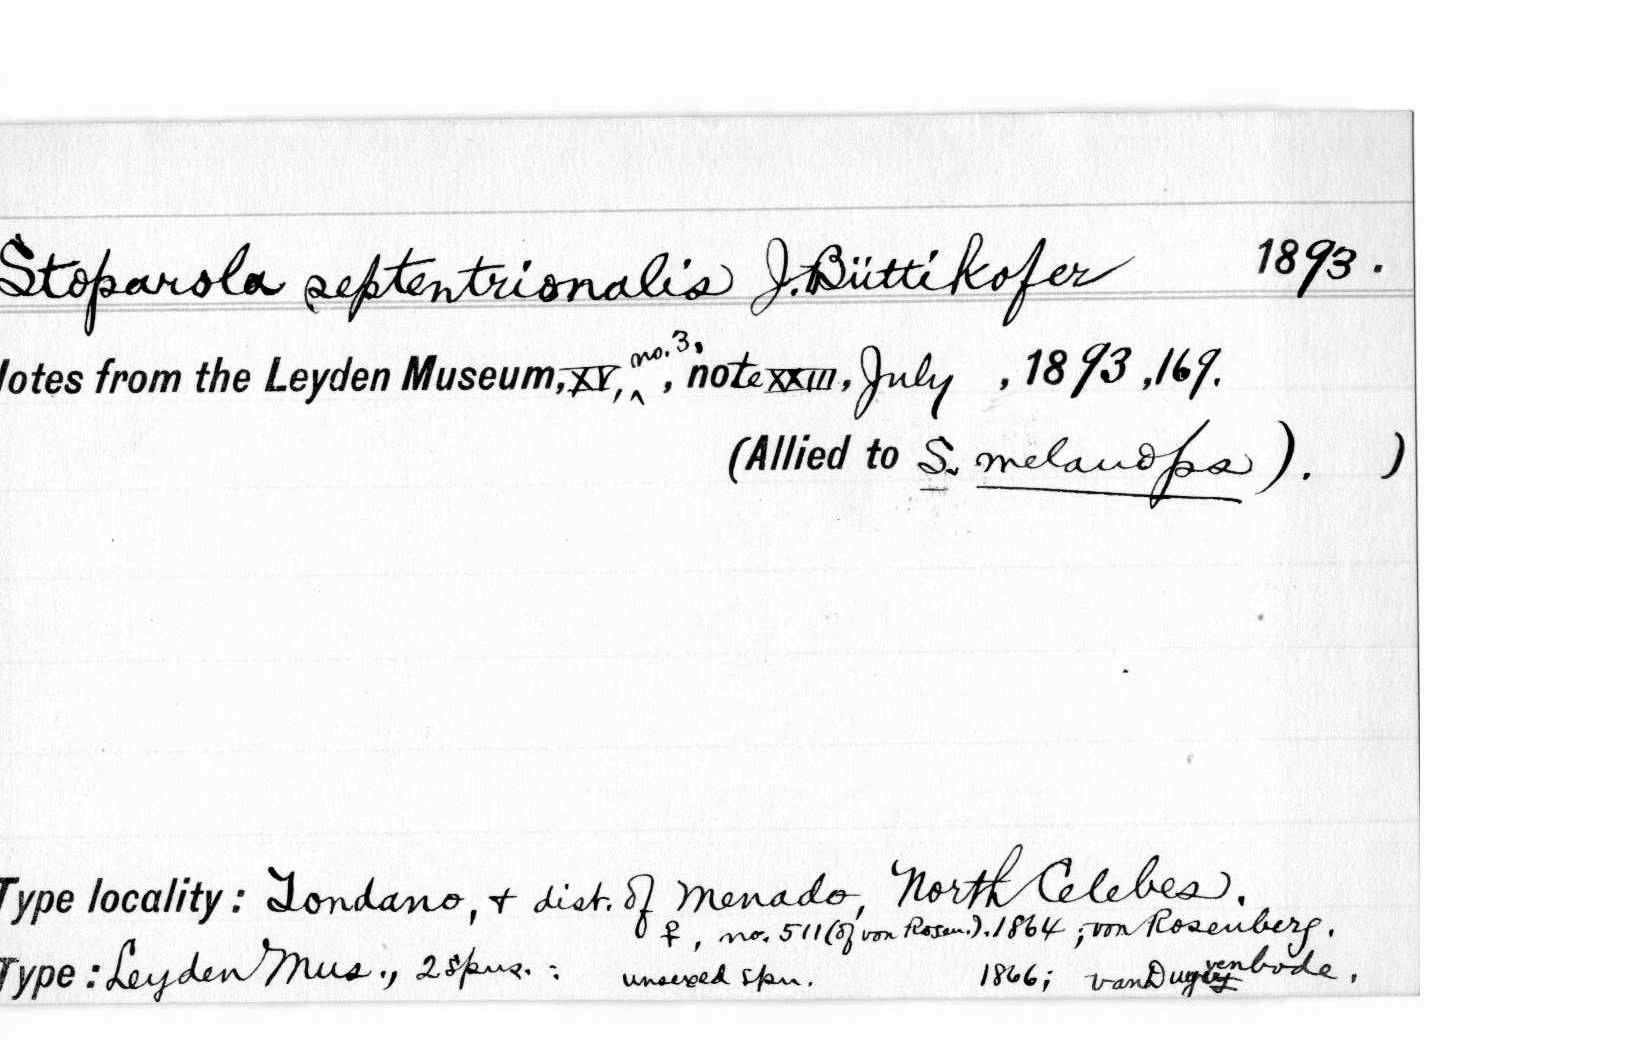 Stoparola septentrionalis J. Büttikofer 1893.
Notes from the Leyden Museum, XV, no. 3, , note XXIII, July , 1893, 169.
(Allied to S. melanops ). )
Type locality: Tondano, + dist. of Menado, North Celebes.
♀, no. 511 (of von Rosen.). 1864; von Rosenberg.
Type: Leyden Mus., 2 spns. : unsexed spn. 1866; van Duyvenbode.